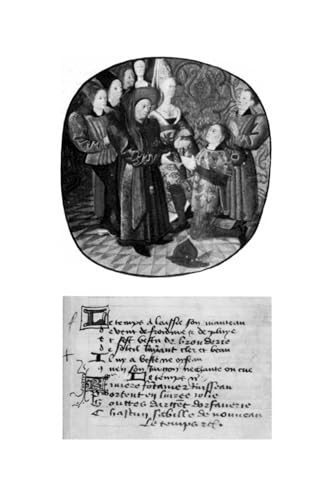 Le temps a laissie son manteau
de vent de froidure et de pluye
et sest vestu de brouderie
de soleil luyant cler et beau
Il ny a beste ne oyseau
quen son jargon ne chante ou crie
Le temps
Riviere fontaine ruisseau
portent en livree jolie
Gouttes dargent dorfaverie
Chascun sabille de nouveau
Le temps